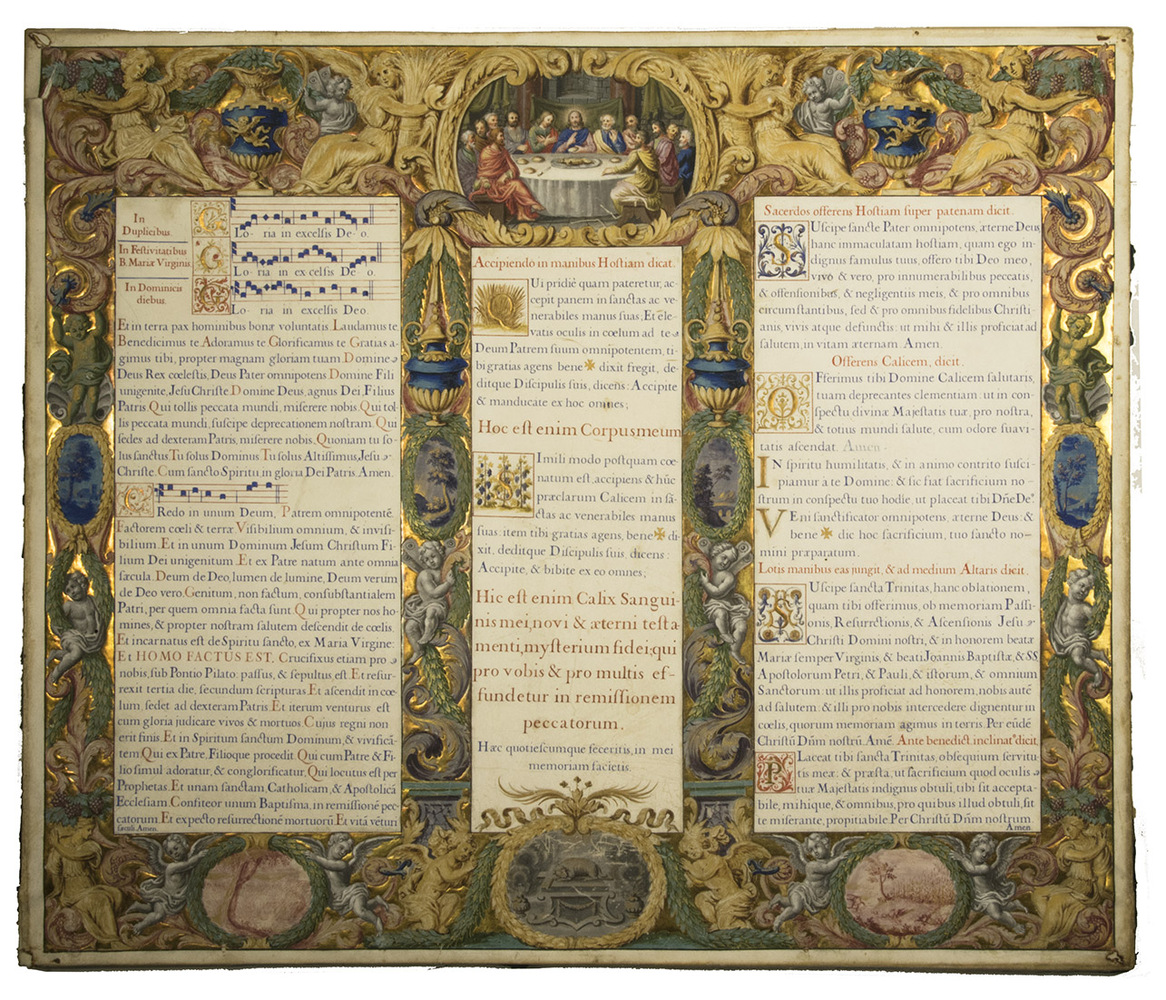 In
Duplicibus.
In Festivitatibus
B. Mariæ Virginis.
In Dominicis
diebus.
GLo- ria in excelsis De- o.
GLo- ria in ex celsis De- o.
GLo- ria in excelsis Deo.
Et in terra pax hominibus bonæ voluntatis. Laudamus te
Benedicimus te Adoramus te Glorificamus te Gratias a-
gimus tibi, propter magnam gloriam tuam Domine
Deus Rex cœlestis, Deus Pater omnipotens Domine Fili
unigenite, Jesu Christe. Domine Deus, agnus Dei, Filius
Patris Qui tollis peccata mundi, miserere nobis Qui tol-
lis peccata mundi, suscipe deprecationem nostram. Qui
sedes ad dexteram Patris, miserere nobis. Quoniam tu so-
lus sanctus Tu solus Dominus Tu solus Altissimus, Jesu
Christe. Cum sancto Spiritu in gloria Dei Patris Amen.
CRedo in unum Deum, Patrem omnipotentē.
Factorem cœli & terræ Visibilium omnium, & invisi-
bilium. Et in unum Dominum Jesum Christum Fi-
lium Dei unigenitum .Et ex Patre natum ante omnia
sæcula. Deum de Deo, lumen de lumine, Deum verum
de Deo vero. Genitum, non factum, consubstantialem
Patri, per quem omnia facta sunt. Qui propter nos ho-
mines, & propter nostram salutem descendit de cœlis.
Et incarnatus est de Spiritu sancto, ex Maria Virgine:
Et HOMO FACTUS EST. Crucifixus etiam pro
nobis, sub Pontio Pilato. passus, & sepultus, est. Et resur-
rexit tertia die, secundum scripturas Et ascendit in cœ-
lum sedet ad dexteram Patris. Et iterum venturus est
cum gloria judicare vivos & mortuos. Cujus regni non
erit finis. Et in Spiritum sanctum Dominum, & vivificā-
tem Qui ex Patre, Filioque procedit. Qui cum Patre & Fi-
lio simul adoratur, & conglorificatur, Qui locutus est per
Prophetas. Et unam sanctam Catholicam, & Apostolicā
Ecclesiam. Confiteor unum Baptisma, in remissionē pec-
catorum. Et expecto resurrectionē mortuorū Et vitā vēturi
sæculi. Amen.
Accipiendo in manibus Hostiam dicat.
QUi pridiē quam pateretur, ac-
cepit panem in sanctas ac ve-
nerabiles manus suas, Et ele-
vatis oculis in cœlum ad te
Deum Patrem suum omnipotentem, ti-
bi gratias agens bene✠ dixit fregit, de-
ditque Discipulis suis, dicens: Accipite
& manducate ex hoc omnes;
Hoc est enim Corpus meum
SImili modo postquam cœ-
natum est, accipiens & hūc
præclarum Calicem in sā-
ctas ac venerabiles manus
suas: item tibi gratias agens, bene✠di-
xit, deditque Discipulis suis, dicens:
Accipite, & bibite ex eo omnes;
Hic est enim Calix Sangui-
nis mei, novi & æterni testa-
menti, mysterium fidei; qui
pro vobis & pro multis ef-
fundetur in remissionem
peccatorum.
Hæc quotiescumque feceritis, in mei
memoriam facietis.
Sacerdos offerens Hostiam super patenam dicit.
SUscipe sancte Pater omnipotens, æterne Deus
hanc immaculatam hostiam, quam ego in-
dignus famulus tuus, offero tibi Deo meo,
vivo & vero, pro innumerabilibus peccatis,
& offensionibus, & negligentiis meis, & pro omnibus
circumstantibus, sed & pro omnibus fidelibus Christi-
anis, vivis atque defunctis: ut mihi & illis proficiat ad
salutem, in vitam æternam. Amen.
Offerens Calicem, dicit.
OFferimus tibi Domine Calicem salutaris,
tuam deprecantes clementiam: ut in con-
spectu divinæ Majestatis tuæ, pro nostra,
& totius mundi salute, cum odore suavi-
tatis ascendat. Amen.
IN spiritu humilitatis, & in animo contrito susci-
piamur a te Domine: & sic fiat sacrificium no-
strum in conspectu tuo hodie, ut placeat tibi Dñe De⁹.
VEni sanctificator omnipotens, æterne Deus: &
bene✠ dic hoc sacrificium, tuo sancto no-
mini præparatum.
Lotis manibus eas jungit, & ad medium Altaris dicit.
SUscipe sancta Trinitas, hanc oblationem,
quam tibi offerimus, ob memoriam Passi-
onis, Resurrectionis, & Ascensionis Jesu
Christi Domini nostri, & in honorem beatæ
Mariæ semper Virginis, & beati Joannis Baptistæ, & SS
Apostolorum Petri, & Pauli, & istorum, & omnium
Sanctorum: ut illis proficiat ad honorem, nobis autē
ad salutem: & illi pro nobis intercedere dignentur in
cœlis, quorum memoriam agimus in terris. Per eūdē
Christū Dñm nostrū. Amē. Ante benedict. inclinat⁹ dicit.
PLaceat tibi sancta Trinitas, obsequium servitu-
tis meæ: & præsta, ut sacrificium quod oculis
tuæ Majestatis indignus obtuli, tibi sit accepta-
bile, mihique, & omnibus, pro quibus illud obtuli, sit
te miserante, propitiabile Per Christū Dñm nostrum.
Amen.